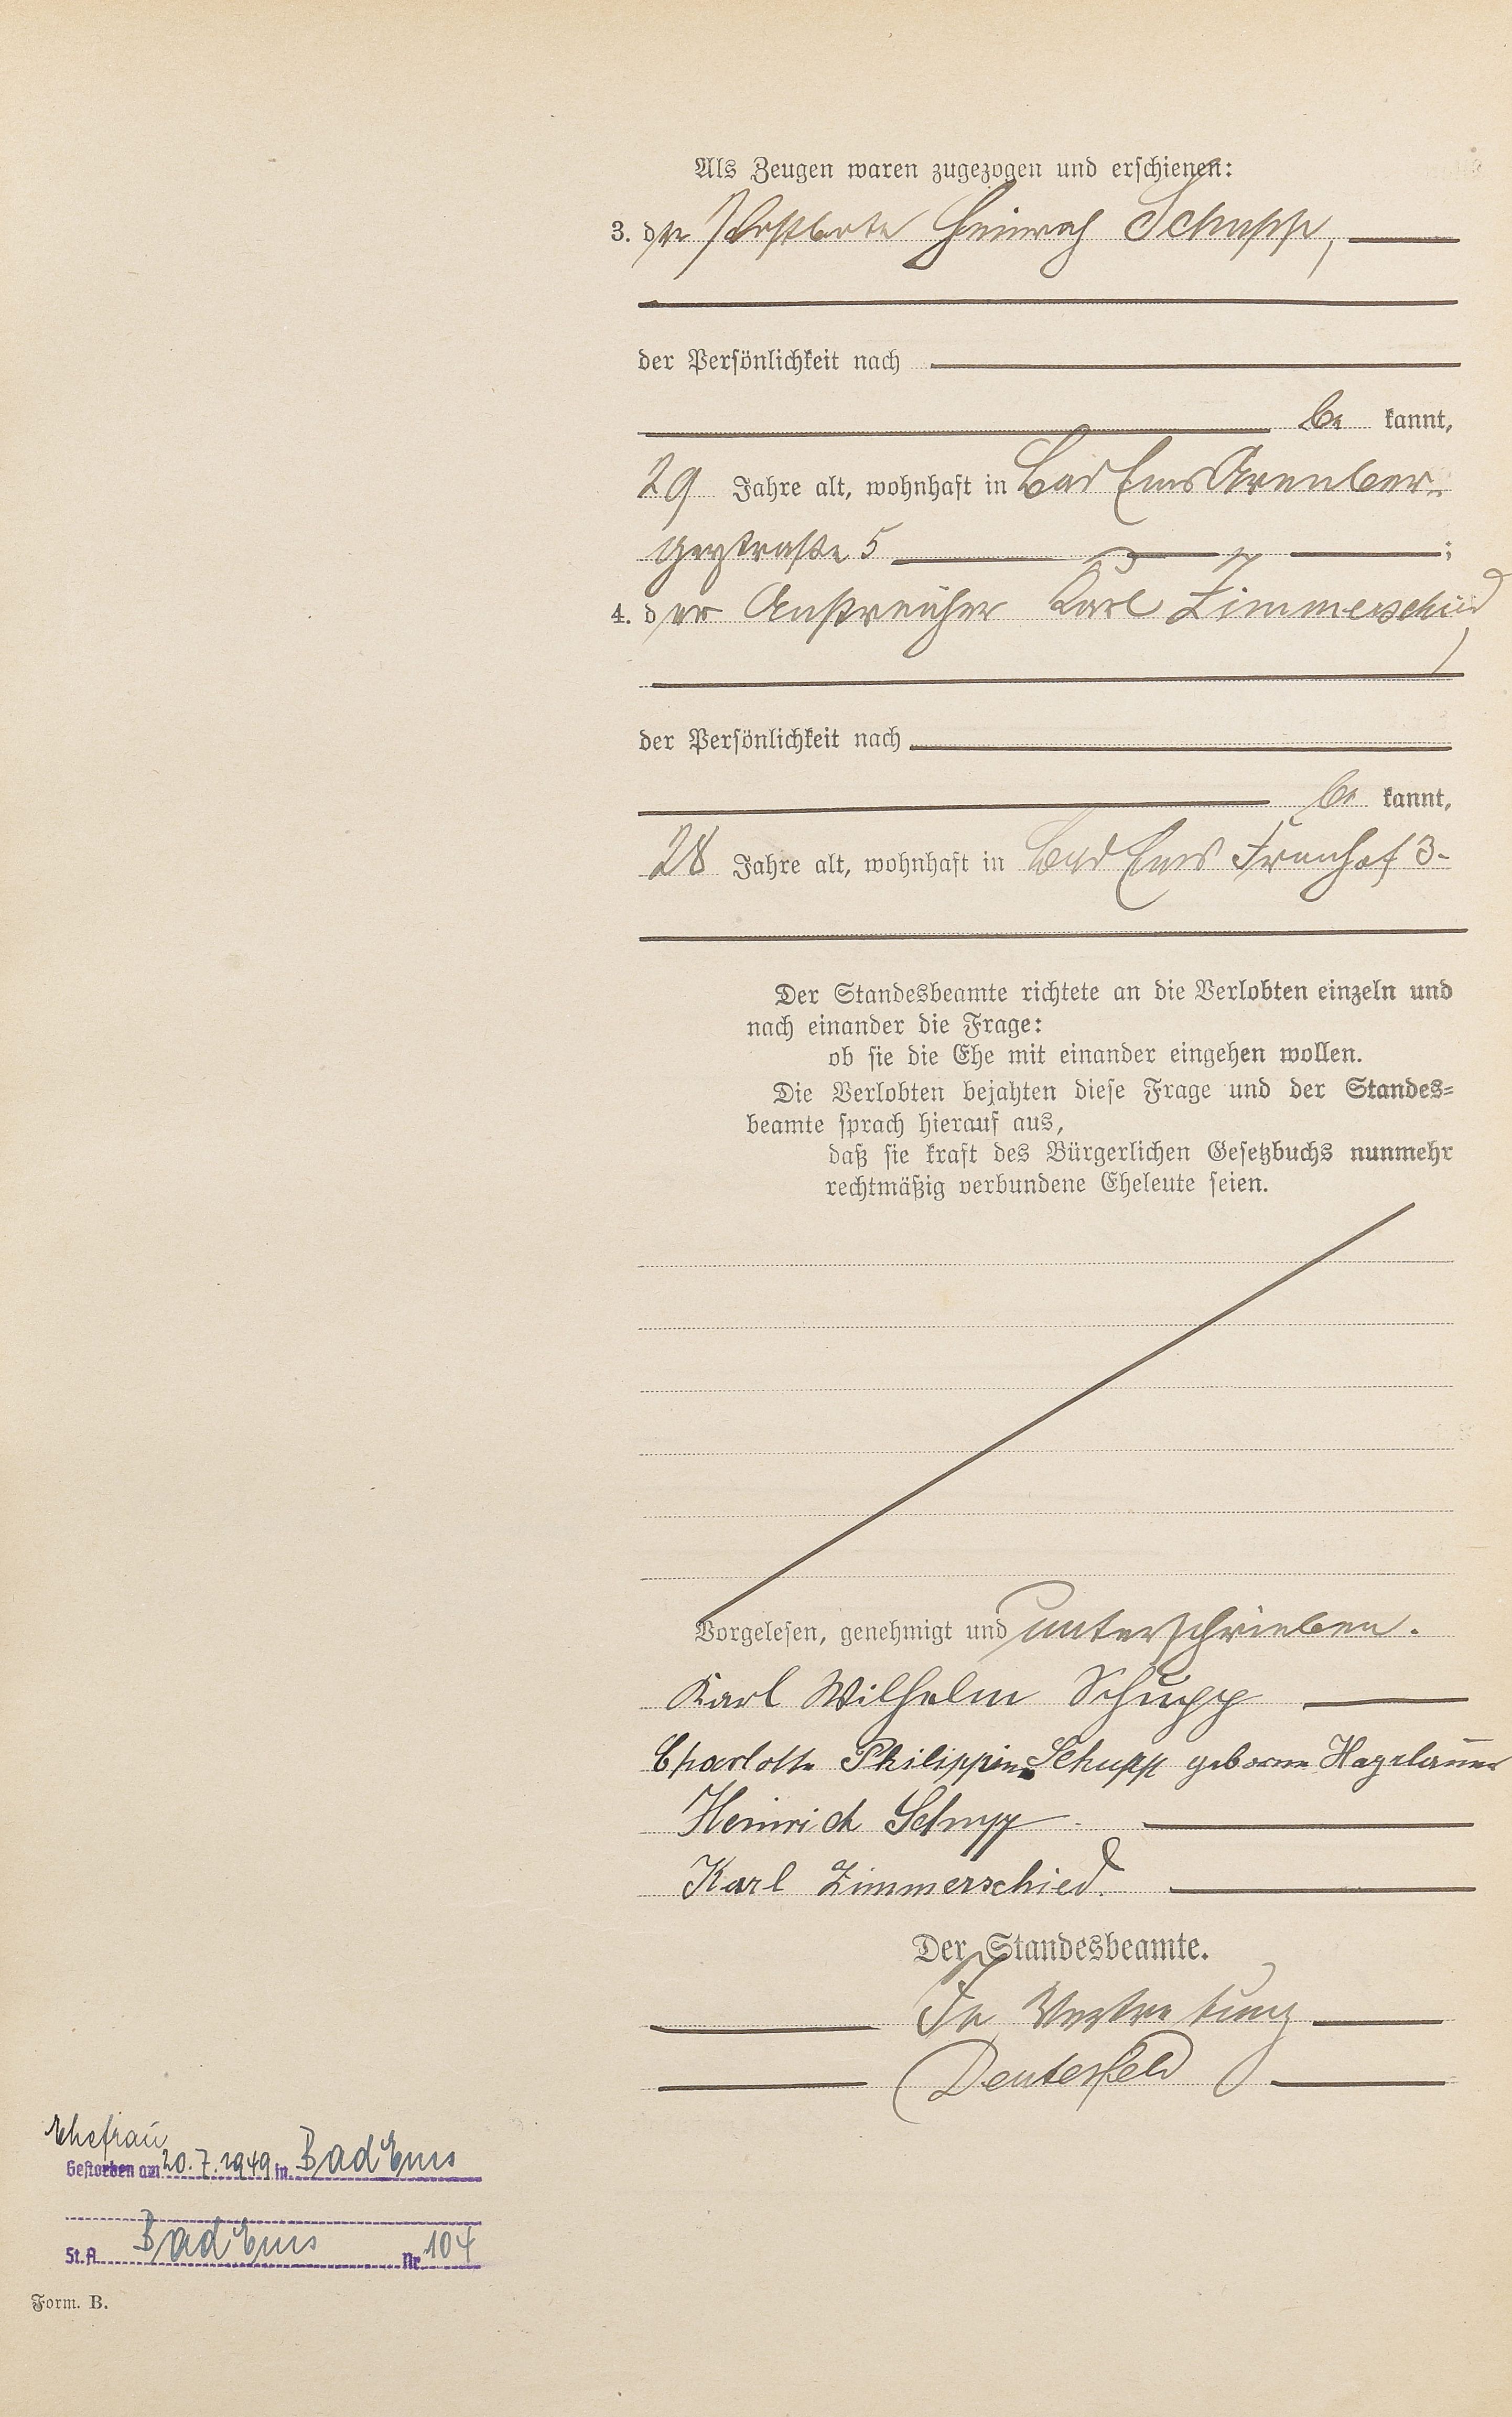 Als Zeugen waren zugezogen und erschienen:
3. der Postbote Heinrich Schupp,
der Persönlichkeit nach
be kannt,
29 Jahre alt, wohnhaft in Bad Ems Arenber-
gerstraße 5 ;
4. der Anstreicher Karl Zimmerschied,
der Persönlichkeit nach
be kannt,
28 Jahre alt, wohnhaft in Bad Ems 3-
Der Standesbeamte richtete an die Verlobten einzeln und
nach einander die Frage:
ob sie die Ehe mit einander eingehen wollen.
Die Verlobten bejahten diese Frage und der Standes=
beamte sprach hierauf aus,
daß sie kraft des Bürgerlichen Gesetzbuchs nunmehr
rechtmäßig verbundene Eheleute seien.
Vorgelesen, genehmigt und unterschrieben.
Karl Wilhelm Schupp
Charlotte Philippine Schupp geborne
Heinrich Schupp
Karl Zimmerschied.
Der Standesbeamte.
In Vertretung
Deutesfeld
Ehefrau
Gestorben am 20.7.1949 in Bad Ems
St.A. Bad Ems Nr 104
Form. B.